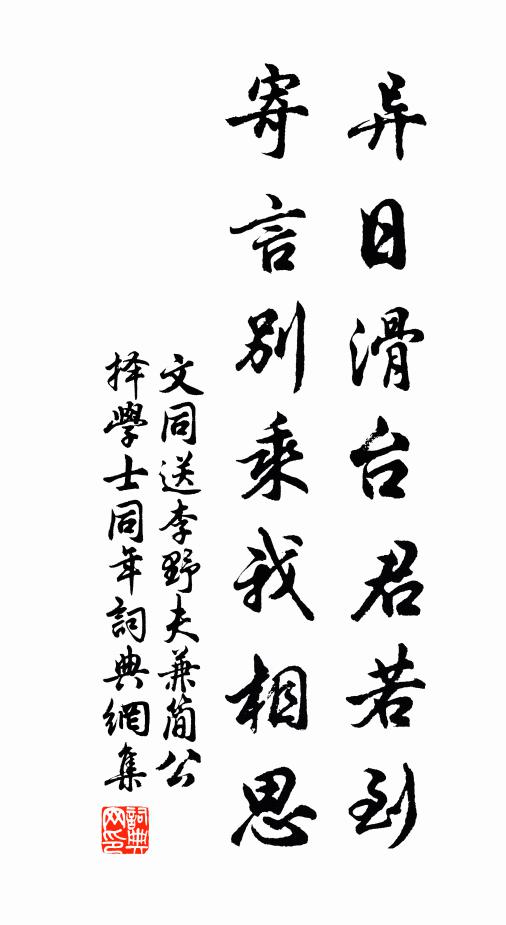 异日滑台君若到
寄言别乘我相思
文同送李野夫兼简公
择學士同年詞典網集
詞典
网印